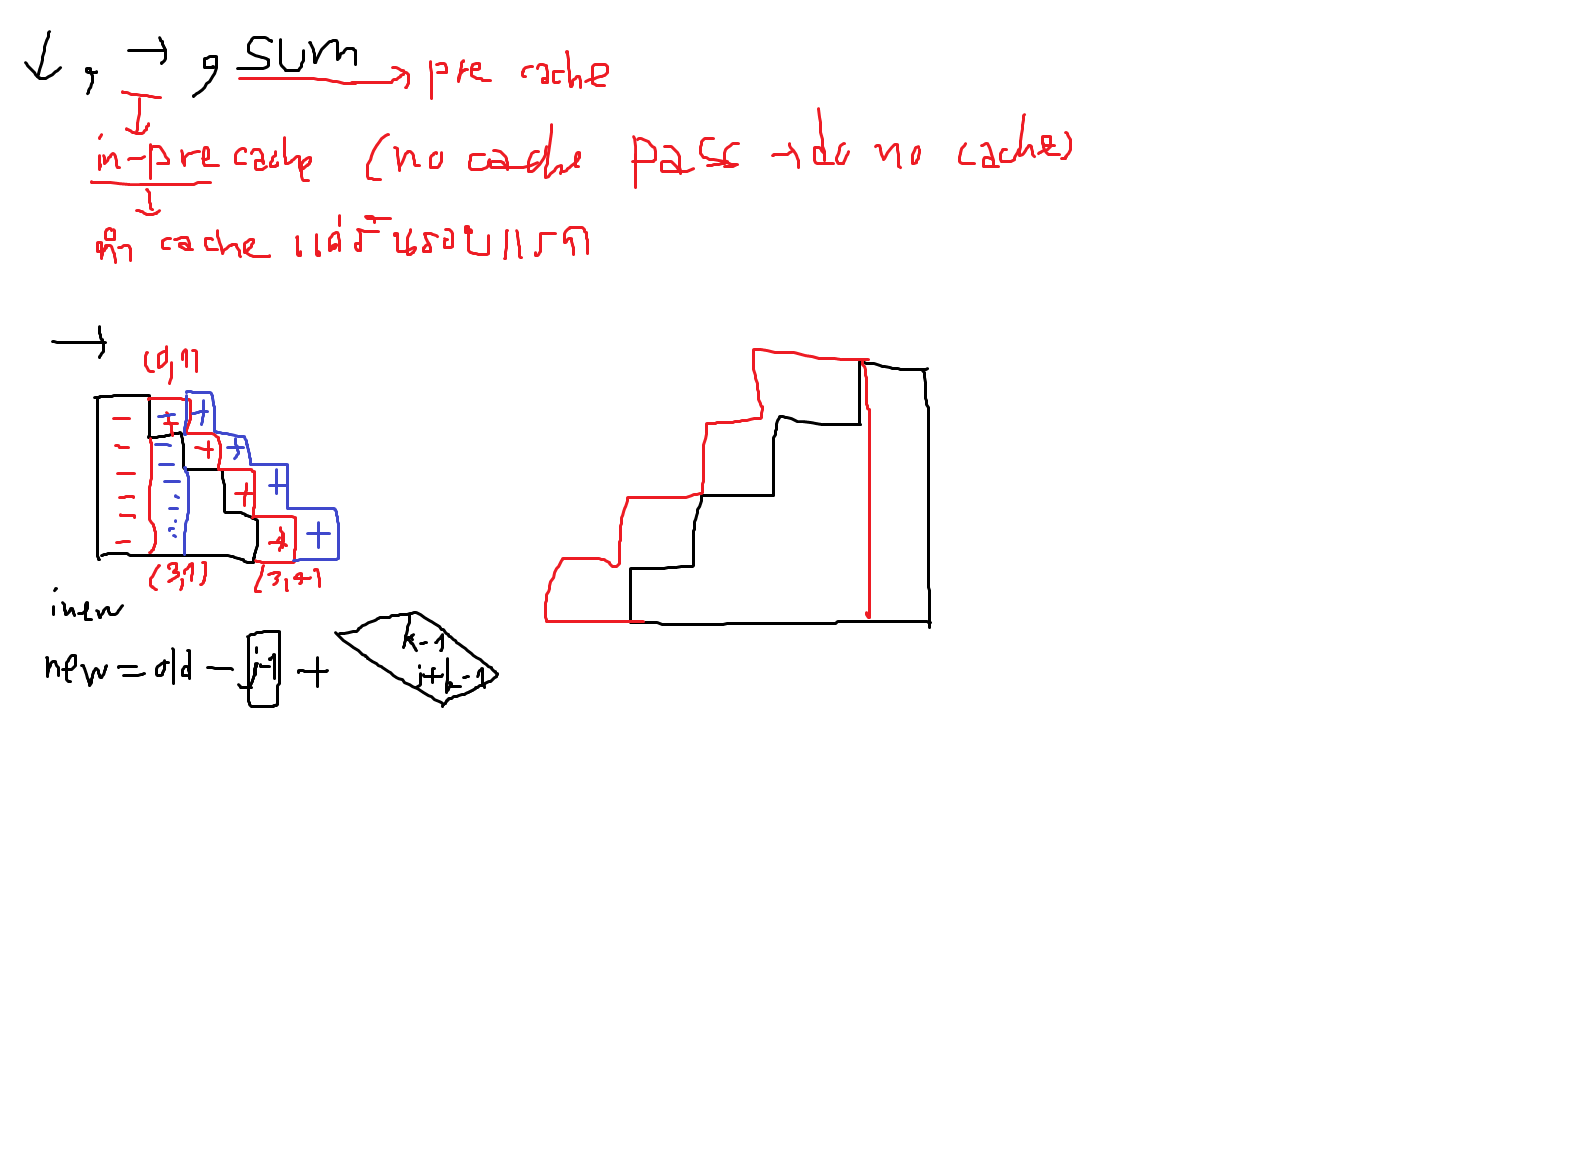 ↓ , → , sum → pre cache
in-pre cache (no cache pass → do no cache)
ทำ cache แค่รันรอบแรก
→
(0,1)
- - + +
- - + +
- - + +
- - + +
(3,1) (3,4)
new = old - j-1 + k-1
j+k-1